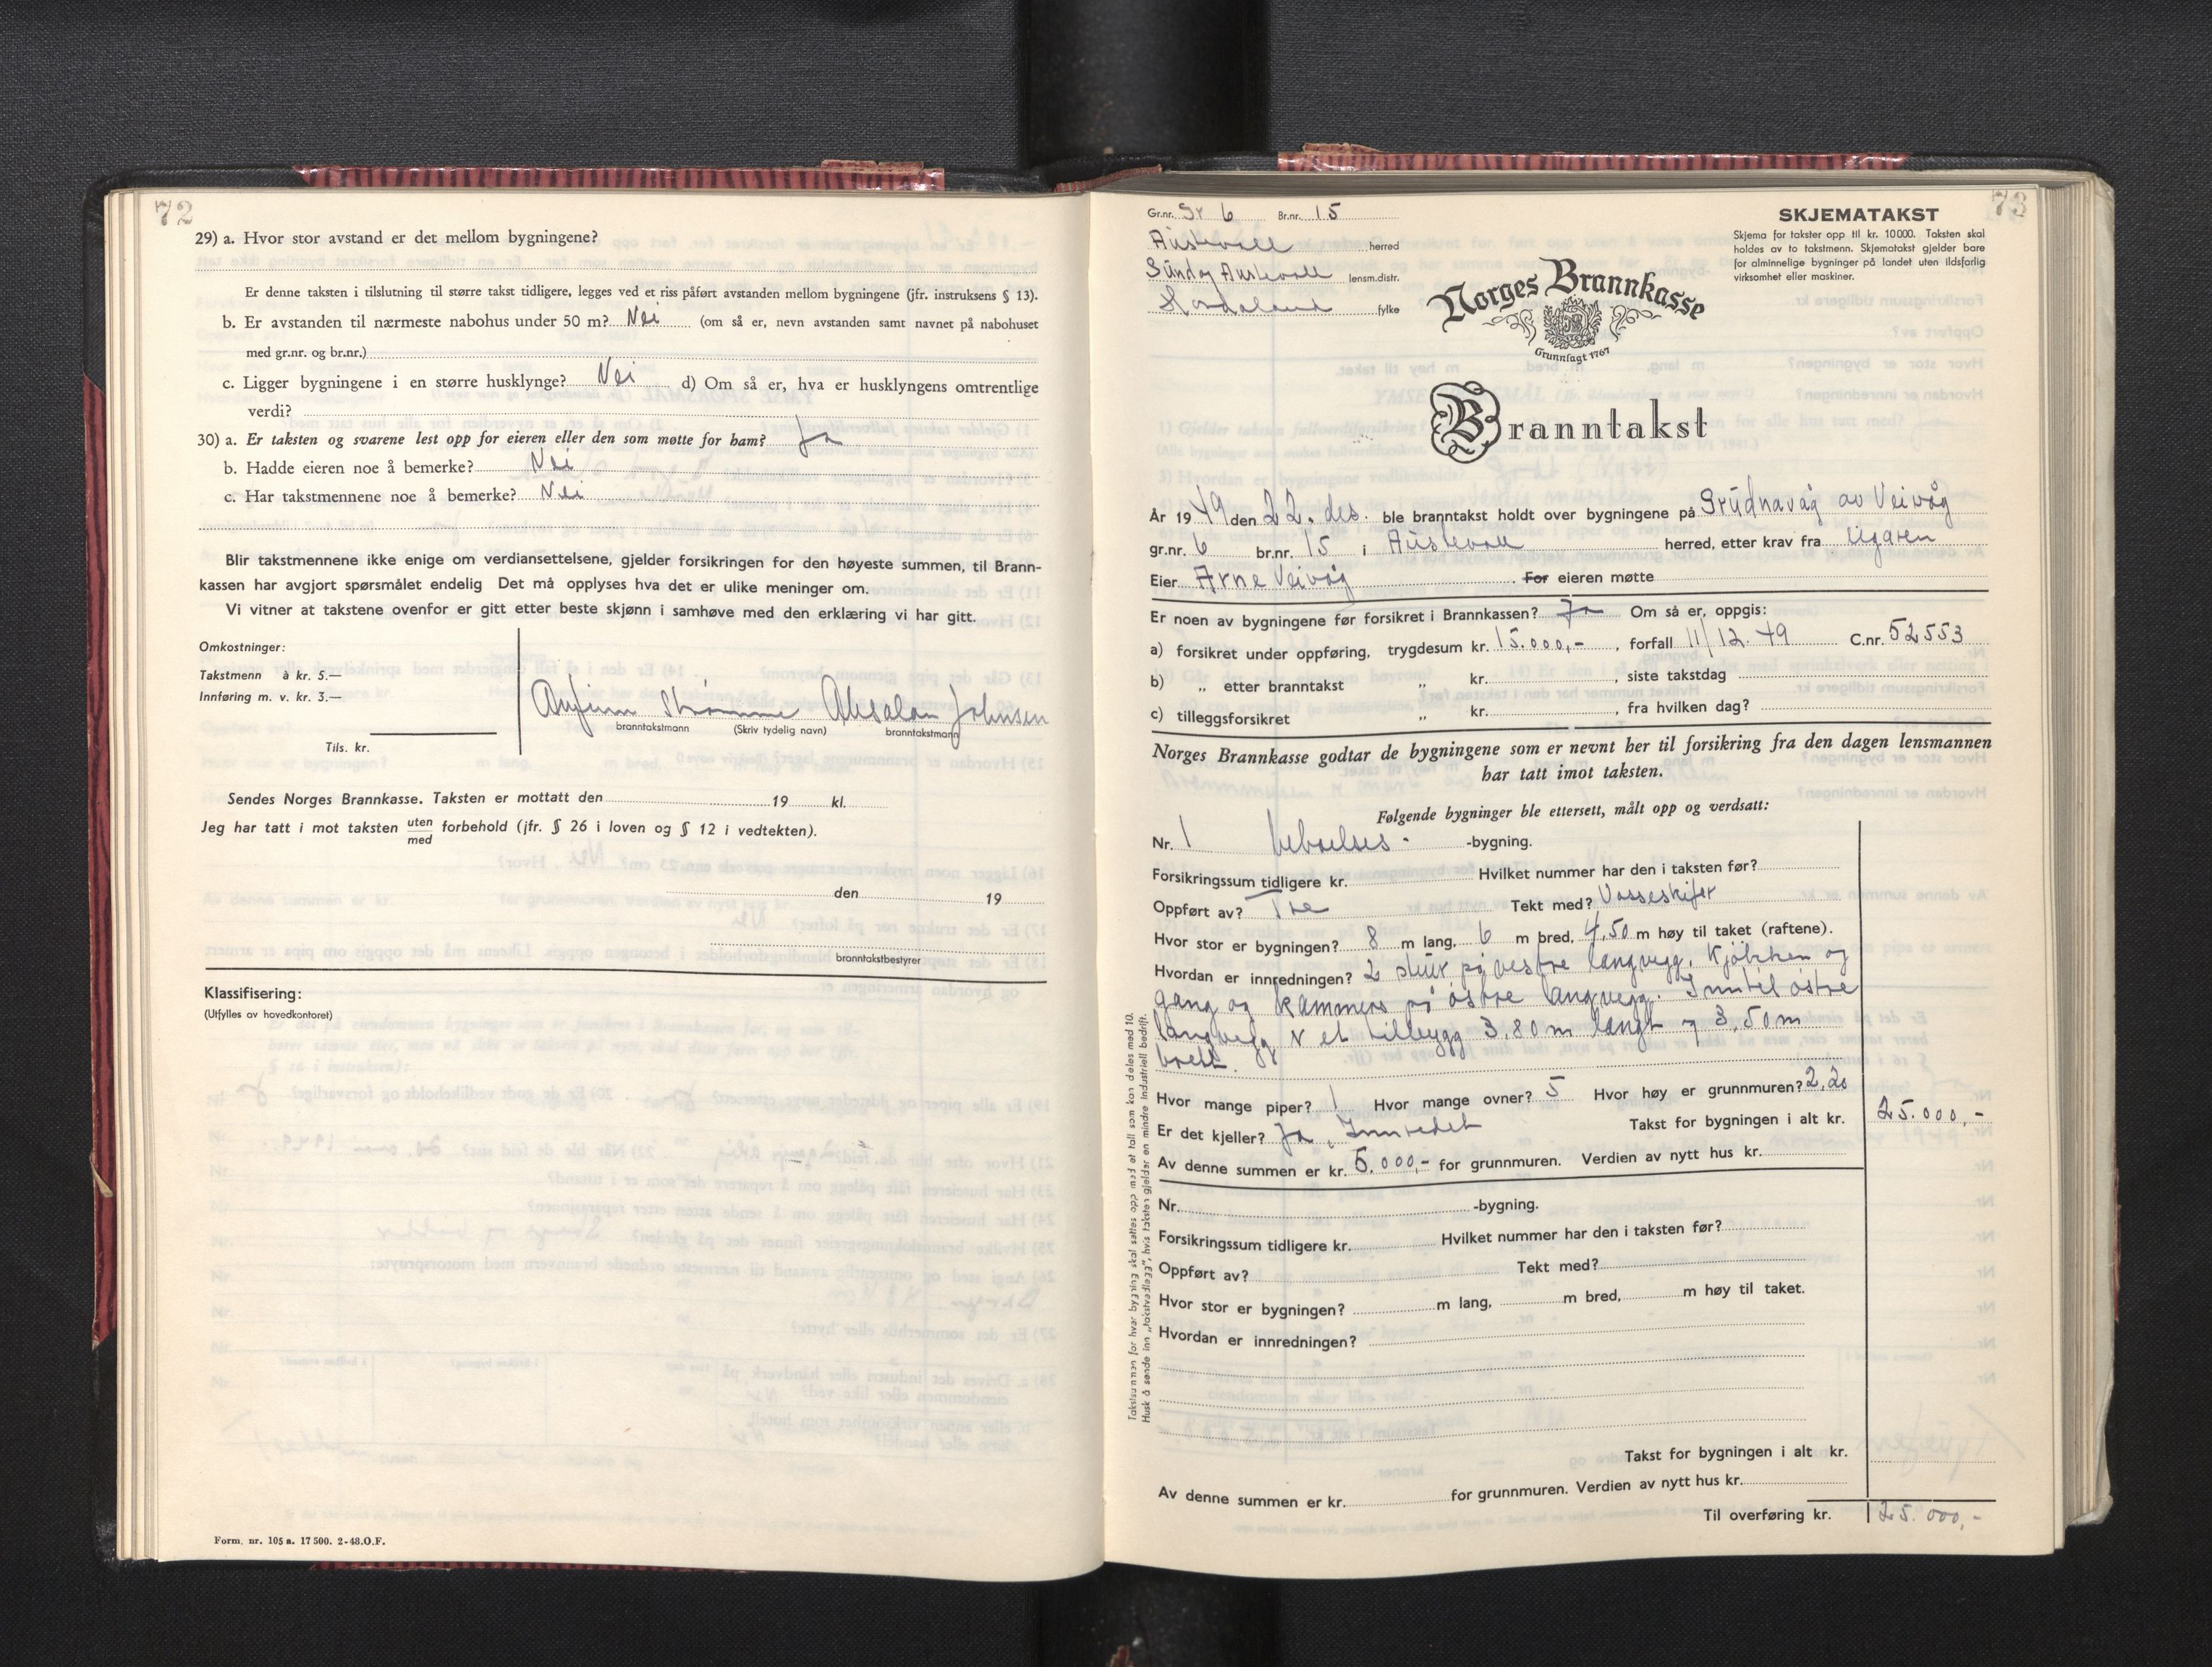 72
29) a. Hvor stor avstand er det mellom bygningene?
Er denne taksten i tilslutning til større takst tidligere, legges ved et riss påført avstanden mellom bygningene (jfr. instruksens § 13).
b. Er avstanden til nærmeste nabohus under 50 m? Nei (om så er, nevn avstanden samt navnet på nabohuset
med gr.nr. og br.nr.)
c. Ligger bygningene i en større husklynge? Nei d) Om så er, hva er husklyngens omtrentlige
verdi?
30) a. Er taksten og svarene lest opp for eieren eller den som møtte for ham? Ja
b. Hadde eieren noe å bemerke? Nei
c. Har takstmennene noe å bemerke? Nei
Blir takstmennene ikke enige om verdiansettelsene, gjelder forsikringen for den høyeste summen, til Brann-
kassen har avgjort spørsmålet endelig Det må opplyses hva det er ulike meninger om.
Vi vitner at takstene ovenfor er gitt etter beste skjønn i samhøve med den erklæring vi har gitt.
Omkostninger:
Takstmenn à kr. 5.—
Innføring m. v. kr. 3.—
Anfinn Strømme Absalon Johnsen
branntakstmann (Skriv tydelig navn) branntakstmann
Tils. kr.
Sendes Norges Brannkasse. Taksten er mottatt den 19 kl.
Jeg har tatt i mot taksten uten/med forbehold (jfr. § 26 i loven og § 12 i vedtekten).
den 19
branntakstbestyrer
Klassifisering:
(Utfylles av hovedkontoret)
Form. nr. 105 a. 17 500. 2-48. O.F.
73
Gr.nr. Gr 6 Br.nr. 15
Austevoll herred
Sund og Austevoll lensm.distr.
Hordaland fylke
SKJEMATAKST
Skjema for takster opp til kr. 10000. Taksten skal
holdes av to takstmenn. Skjematakst gjelder bare
for alminnelige bygninger på landet uten ildsfarlig
virksomhet eller maskiner.
Norges Brannkasse
Grunnlagt 1767
Branntakst
År 1949 den 22. des. ble branntakst holdt over bygningene på Grudnavåg av Veivåg
gr.nr. 6 br.nr. 15 i Austevoll herred, etter krav fra eigaren
Eier Arne Veivåg For eieren møtte
Er noen av bygningene før forsikret i Brannkassen? Ja Om så er, oppgis:
a) forsikret under oppføring, trygdesum kr. 15.000,- , forfall 11/12.49 C.nr. 52553
b) „ etter branntakst „ kr. , siste takstdag
c) tilleggsforsikret „ kr. , fra hvilken dag?
Norges Brannkasse godtar de bygningene som er nevnt her til forsikring fra den dagen lensmannen
har tatt imot taksten.
Følgende bygninger ble ettersett, målt opp og verdsatt:
Nr. 1 beboelses- -bygning.
Forsikringssum tidligere kr. Hvilket nummer har den i taksten før?
Oppført av? Tre Tekt med? Vosseskifer
Hvor stor er bygningen? 8 m lang, 6 m bred, 4,50 m høy til taket (raftene).
Hvordan er innredningen? 2 stuer på vestre langvegg. Kjøkken og
gang og kammers på østre langvegg. Inntil østre
langvegg er et tilbygg 3,80 m langt og 3,50 m
bredt.
Hvor mange piper? 1 Hvor mange ovner? 5 Hvor høy er grunnmuren? 2,20
Er det kjeller? Ja, Innredet Takst for bygningen i alt kr. 25.000,-
Av denne summen er kr. 5.000,- for grunnmuren. Verdien av nytt hus kr.
Nr. -bygning.
Forsikringssum tidligere kr. Hvilket nummer har den i taksten før?
Oppført av? Tekt med?
Hvor stor er bygningen? m lang, m bred, m høy til taket.
Hvordan er innredningen?
Takst for bygningen i alt kr.
Av denne summen er kr. for grunnmuren. Verdien av nytt hus kr.
Til overføring kr. 25.000,-
Takstsummen for hver bygning skal settes opp med et tall som kan deles med 10.
Husk å sende inn „takstvedlegg", hvis taksten gjelder en mindre industriell bedrift.